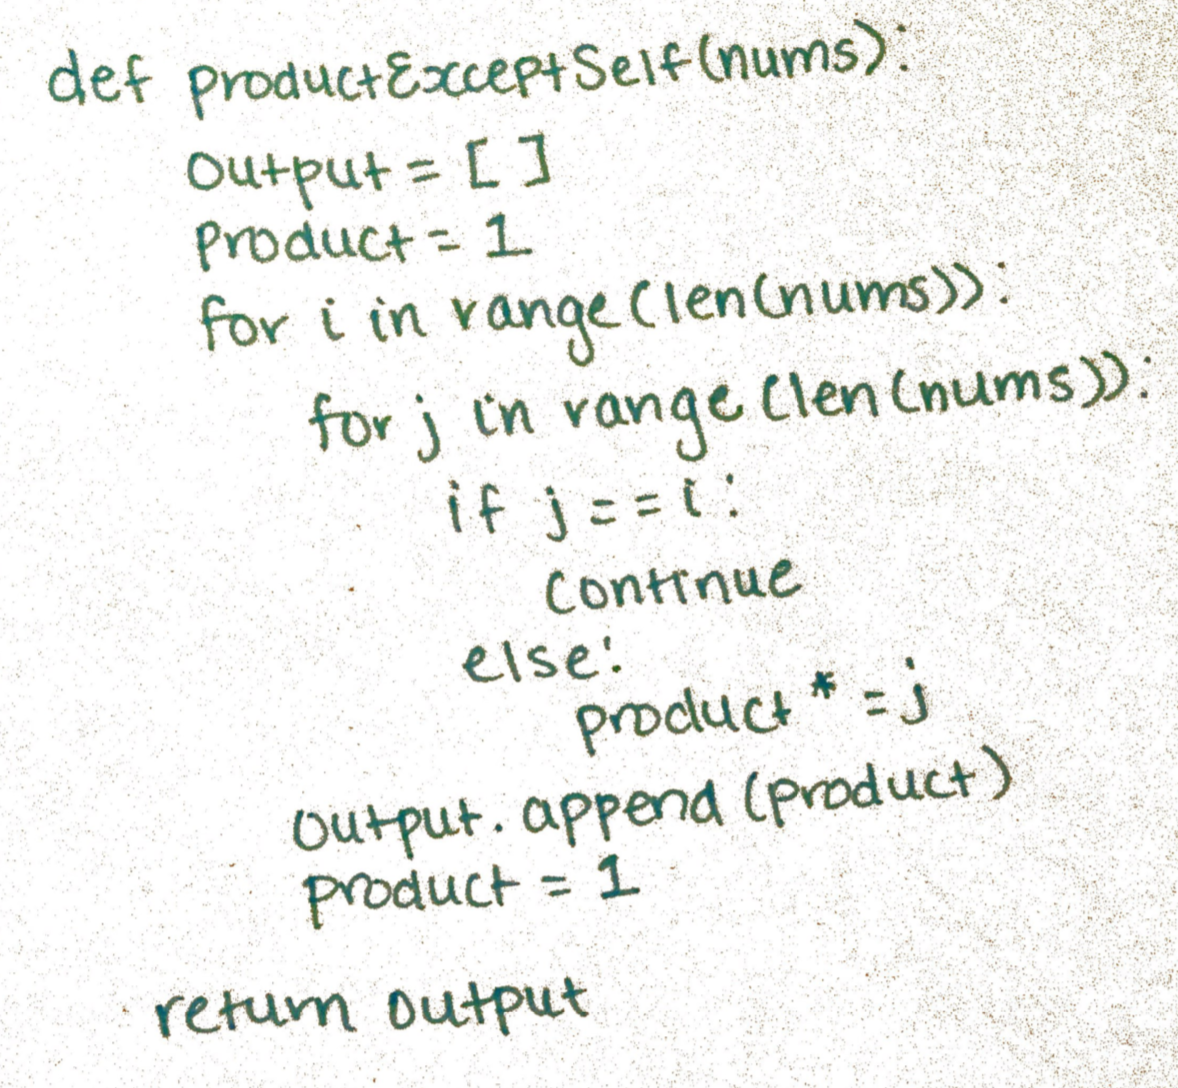 def productExceptSelf(nums):
    output = [ ]
    product = 1
    for i in range(len(nums)):
        for j in range(len(nums)):
            if j == i:
                continue
            else:
                product * = j
        output.append(product)
        product = 1
    return output